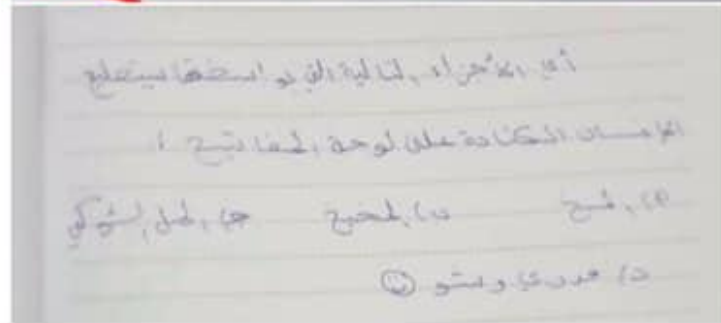 أي الأجزاء التالية التي بواسطتها يستطيع
الإنسان الكتابة على لوحة المفاتيح ؟
أ) المخ ب) المخيخ ج) الحبل الشوكي
د) مدري وستو